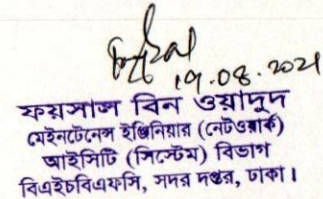 19.08.2021
ফয়সাল বিন ওয়াদুদ
মেইনটেনেন্স ইঞ্জিনিয়ার (নেটওয়ার্ক)
আইসিটি (সিস্টেম) বিভাগ
বিএইচবিএফসি, সদর দপ্তর, ঢাকা।